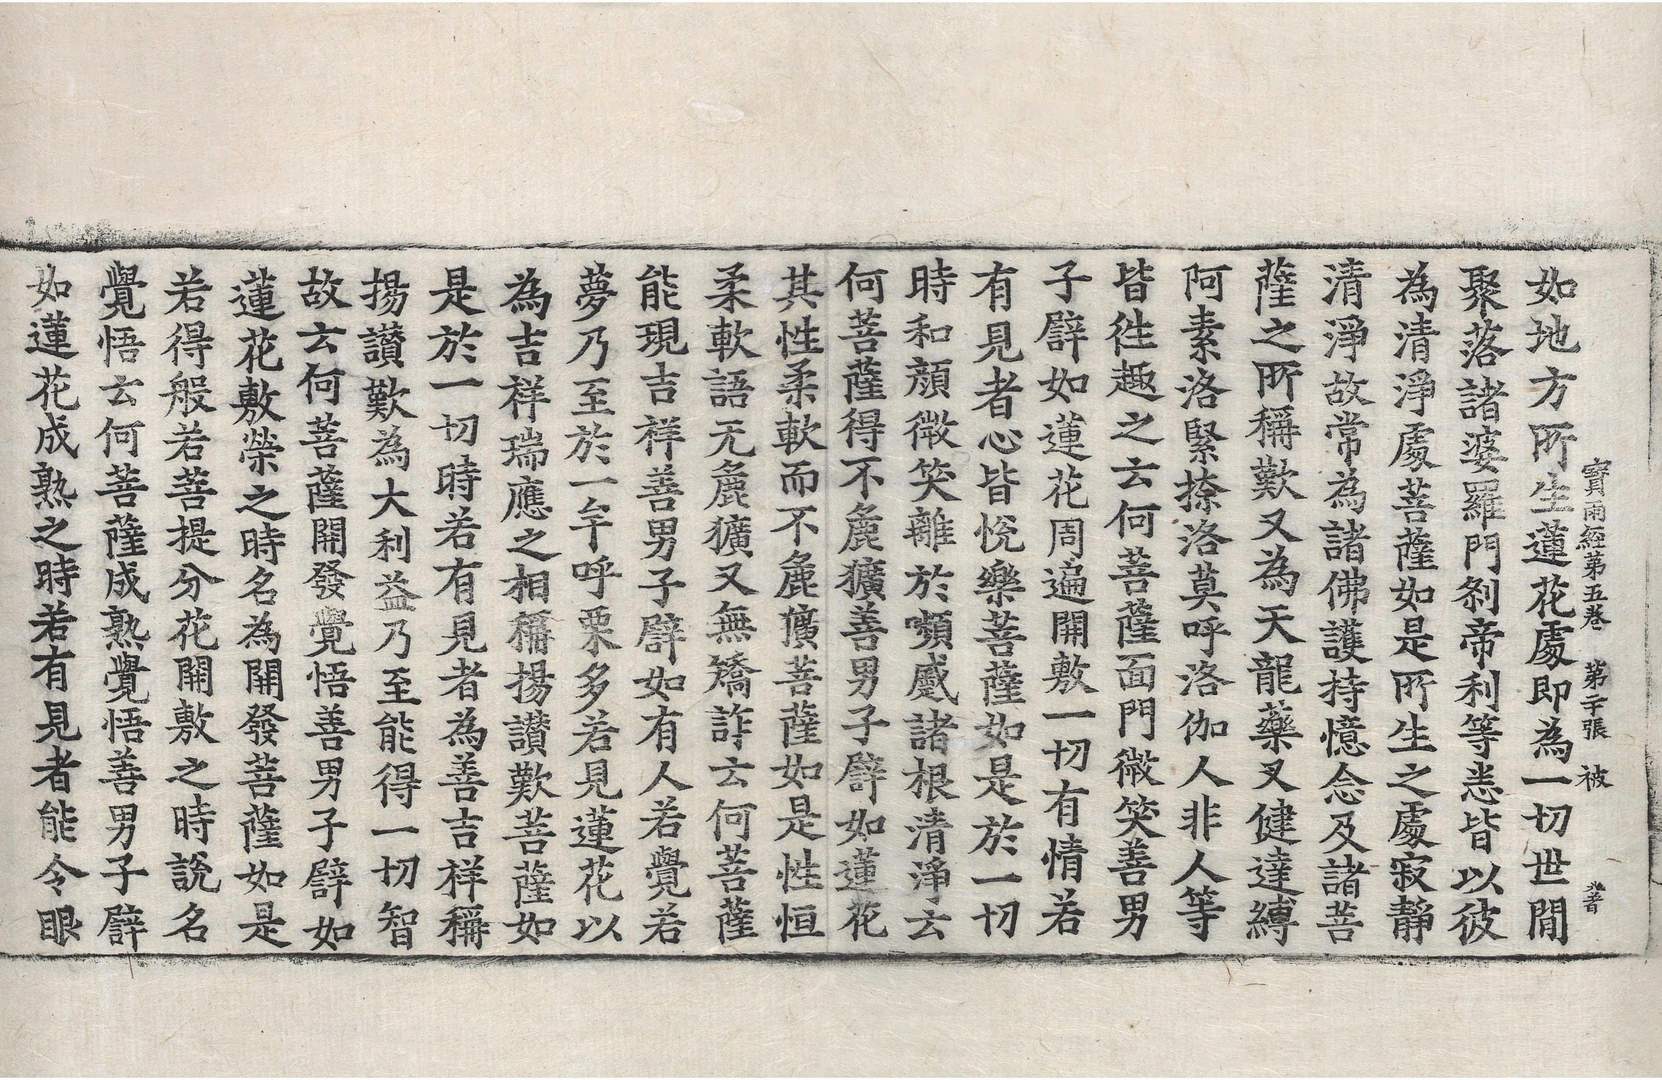 寶雨經第五卷　第二十張　被
如地方所生蓮花處即為一切世間
聚落諸婆羅門剎帝利等悉皆以彼
為清淨處菩薩如是所生之處寂靜
清淨故常為諸佛護持憶念及諸菩
薩之所稱歎又為天龍藥叉健達縛
阿素洛緊捺洛莫呼洛伽人非人等
皆往趣之云何菩薩面門微笑善男
子譬如蓮花周遍開敷一切有情若
有見者心皆悅樂菩薩如是於一切
時和顏微笑離於嚬蹙諸根清淨云
何菩薩得不麁獷善男子譬如蓮花
其性柔軟而不麁獷菩薩如是性恒
柔軟語无麁獷又無矯詐云何菩薩
能現吉祥善男子譬如有人若覺若
夢乃至於一牟呼栗多若見蓮花以
為吉祥瑞應之相稱揚讚歎菩薩如
是於一切時若有見者為善吉祥稱
揚讚歎為大利益乃至能得一切智
故云何菩薩開發覺悟善男子譬如
蓮花敷榮之時名為開發菩薩如是
若得般若菩提分花開敷之時說名
覺悟云何菩薩成熟覺悟善男子譬
如蓮花成熟之時若有見者能令眼